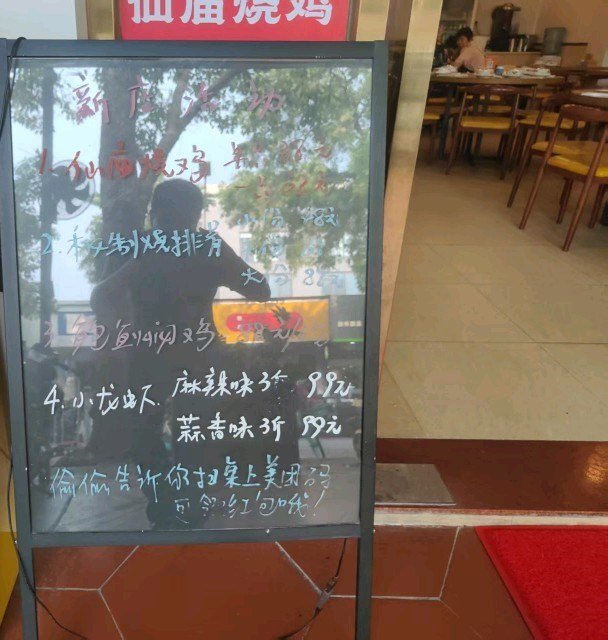 仙庙烧鸡
新店活动
1.仙庙烧鸡 半只 38元
一只
2.私制烧排骨
大份
3.鲍鱼焖鸡
4.小龙虾 麻辣味3斤 99元
蒜香味3斤 99元
偷偷告诉你扫桌上美团码
可领红包哦!